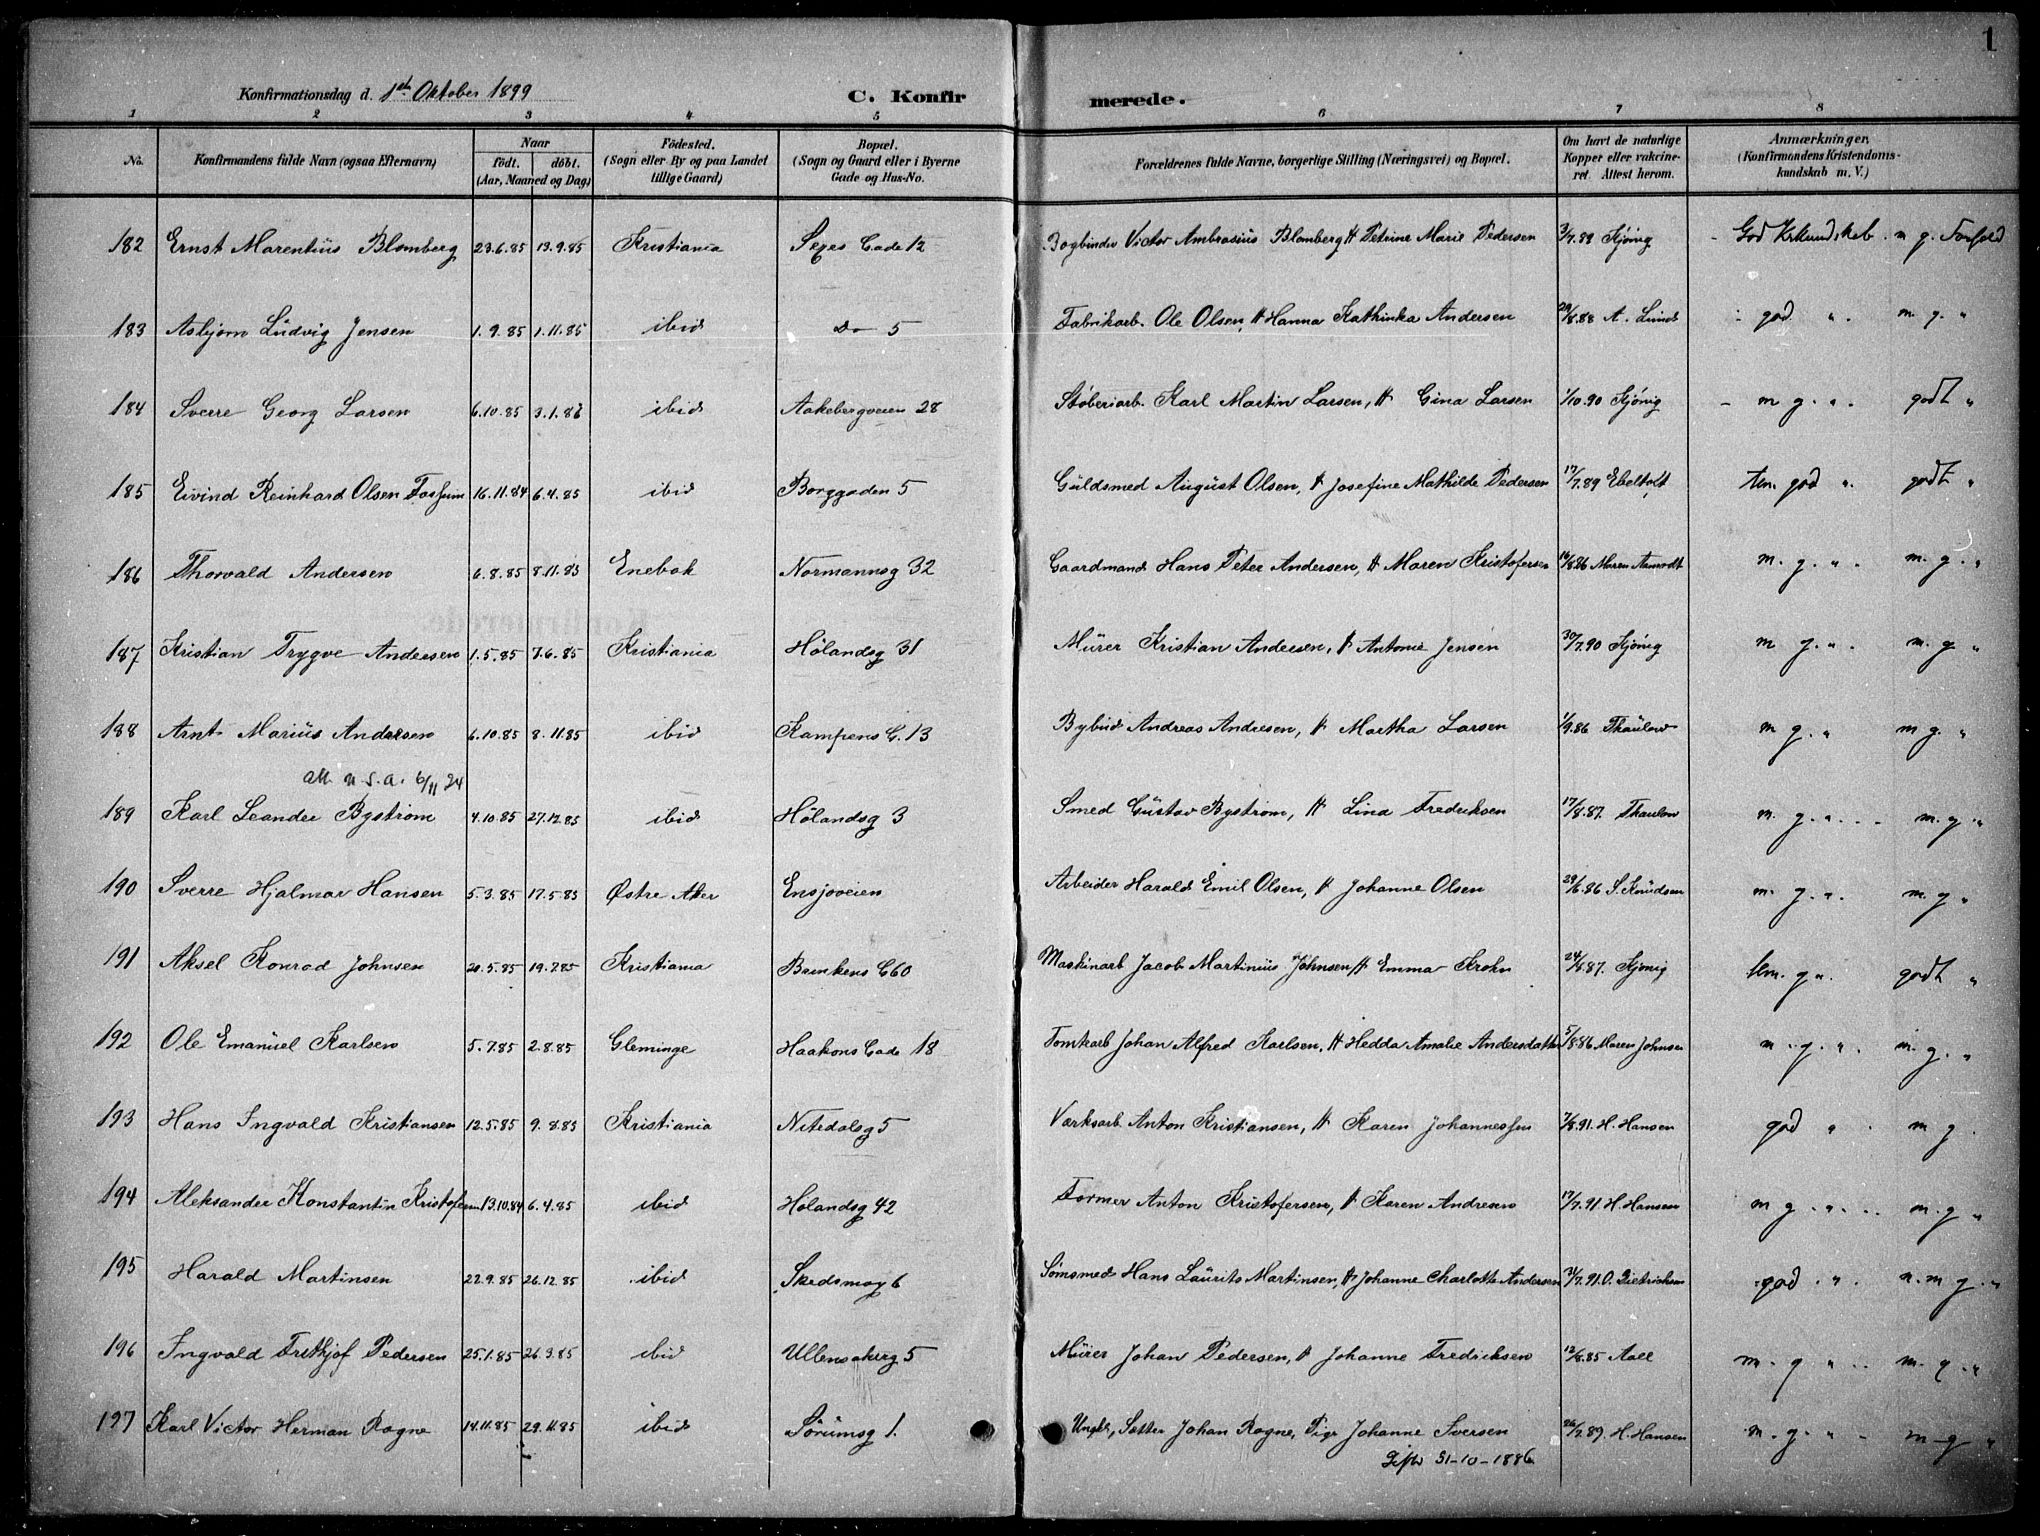 1
Konfirmationsdag d. 1ste Oktober 1899 C. Konfirmerede.
1 2 3 4 5 6 7 8
No. Konfirmandens fulde Navn (ogsaa Efternavn) Naar födt. döbt. (Aar, Maaned og Dag) Födested. (Sogn eller By og paa Landet tillige Gaard) Bopæl. (Sogn og Gaard eller i Byerne Gade og Hus-No. Forældrenes fulde Navne, borgerlige Stilling (Næringsvei) og Bopæl. Om havt de naturlige Kopper eller vakcineret. Attest herom. Anmærkninger, (Konfirmandens Kristendomskundskab m. V.)
182 Ernst Marentius Blomberg 23.6.85 13.9.85 Kristiania Sexes Gade 12 Bogbinder Victor Ambrosius Blomberg & Petrine Marie Pedersen 3/7.89 Kjönig God Kr.kundskab. m g. Forhold
183 Asbjørn Ludvig Jensen 1.9.85 1.11.85 ibid do 5 Fabrikarb. Ole Olsen, & Hanna Kathinka Andersen 29/8.88 A. Lund god " . m. g. "
184 Sverre Georg Larsen 6.10.85 3.1.86 ibid Aakebergveien 28 Støberiarb. Karl Martin Larsen, & Gina Larsen 1/10.90 Kjönig m g. " . godt "
185 Eivind Reinhard Olsen Fossum 16.11.84 6.4.85 ibid Borggaden 5 Guldsmed August Olsen, & Josefine Mathilde Pedersen 17/7.89 Ebeltoft tem. god " . godt "
186 Thorvald Andersen 6.8.85 8.11.85 Enebak Normannsg 32 Gaardmand Hans Peter Andersen, & Maren Kristofersen 16/8.86 Maren Aamodt m. g. " . m. g. "
187 Kristian Trygve Andersen 1.5.85 7.6.85 Kristiania Hölandsg 31 Murer Kristian Andersen, & Antonie Jensen 30/7.90 Kjönig m g. " . m. g "
188 Arnt Marius Andersen 6.10.85 8.11.85 ibid Kampens G. 13 Bybud Andreas Andresen, & Martha Larsen 1/9.86 Thaulow m g. " m g. "
att. U.S.A. 6/11 24
189 Karl Leander Bystrøm 4.10.85 27.12.85 ibid Hölandsg 3 Smed Gustav Bystrøm, & Lina Fredriksen 17/8.87. Thaulow m. g. " . m. g "
190 Sverre Hjalmar Hansen 5.3.85 17.5.85 Østre Aker Ensjoveien Arbeider Harald Emil Olsen, & Johanne Olsen 29/6.86 S. Knudsen m. g. " . m. g "
191 Aksel Konrad Johnsen 20.5.85 19.7.85 Kristiania Brinkens G 60 Maskinarb Jacob Martinius Johnsen & Emma Krohn 24/8.87. Kjönig tem. g " . godt "
192 Ole Emanuel Karlsen 5.7.85 2.8.85 Gleminge Haakons Gade 18 Tomtearb Johan Alfred Karlsen, & Hedda Amalie Andersdatter 5/8.86 Maren Johnsen m . g. " . m. g. "
193 Hans Ingvald Kristiansen 12.5.85 9.8.85 Kristiania Nitedalsg 5 Værksarb. Anton Kristiansen, & Karen Johannessen 7/8.91. H. Hansen god " . m g.
194 Aleksander Konstantin Kristofersen 13.10.84 6.4.85 ibid Hölandsg 42 Former Anton Kristofersen, & Karen Andresen 17/7.91 H. Hansen m g . " . m. g "
195 Harald Martinsen 22.9.85 26.12.85 ibid Skedsmog 6 Sømsmed Hans Laurits Martinsen, & Johanne Charlotte Andersen 31/7.91. O. Dietrichson god . " . m. g. "
196 Ingvald Frithjof Pedersen 25.1.85 26.3.85 ibid Ullensakerg 5 Murer Johan Pedersen, & Johanne Fredriksen 12/8.85 Aall m. g " . m. g. "
197 Karl Victor Herman Ragne 14.11.85 29.11.85 ibid Sörumsg 1. Ungk, Sætter Johan Ragne, Pige Johanne Iversen 26/7.89. H. Hansen m. g. " m g "
Gifte 31-10-1886.